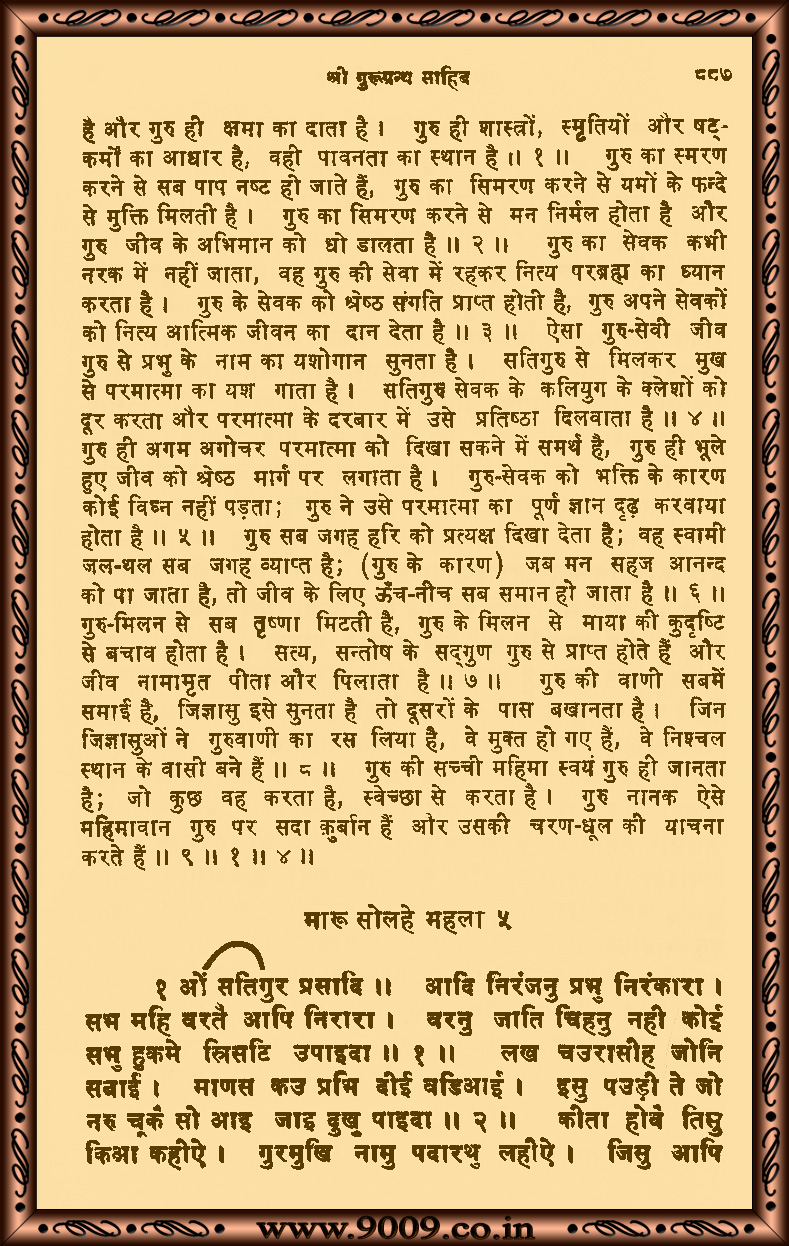 श्री गुरूग्रन्थ साहिब ८८७
है और गुरु ही क्षमा का दाता है। गुरु ही शास्त्रों, स्मृतियों और षट्-
कर्मों का आधार है, वही पावनता का स्थान है॥ १ ॥ गुरु का स्मरण
करने से सब पाप नष्ट हो जाते हैं, गुरु का सिमरण करने से यमों के फन्दे
से मुक्ति मिलती है। गुरु का सिमरण करने से मन निर्मल होता है और
गुरु जीव के अभिमान को धो डालता है॥ २ ॥ गुरु का सेवक कभी
नरक में नहीं जाता, वह गुरु की सेवा में रहकर नित्य परब्रह्म का ध्यान
करता है। गुरु के सेवक को श्रेष्ठ संगति प्राप्त होती है, गुरु अपने सेवकों
को नित्य आत्मिक जीवन का दान देता है॥ ३ ॥ ऐसा गुरु-सेवी जीव
गुरु से प्रभु के नाम का यशोगान सुनता है। सतिगुरु से मिलकर मुख
से परमात्मा का यश गाता है। सतिगुरु सेवक के कलियुग के क्लेशों को
दूर करता और परमात्मा के दरबार में उसे प्रतिष्ठा दिलवाता है॥ ४ ॥
गुरु ही अगम अगोचर परमात्मा को दिखा सकने में समर्थ है, गुरु ही भूले
हुए जीव को श्रेष्ठ मार्ग पर लगाता है। गुरु-सेवक को भक्ति के कारण
कोई विघ्न नहीं पड़ता; गुरु ने उसे परमात्मा का पूर्ण ज्ञान दृढ़ करवाया
होता है॥ ५ ॥ गुरु सब जगह हरि को प्रत्यक्ष दिखा देता है; वह स्वामी
जल-थल सब जगह व्याप्त है; (गुरु के कारण) जब मन सहज आनन्द
को पा जाता है, तो जीव के लिए ऊँच-नीच सब समान हो जाता है॥ ६ ॥
गुरु-मिलन से सब तृष्णा मिटती है, गुरु के मिलन से माया की कुदृष्टि
से बचाव होता है। सत्य, सन्तोष के सद्गुण गुरु से प्राप्त होते हैं और
जीव नामामृत पीता और पिलाता है॥ ७ ॥ गुरु की वाणी सबमें
समाई है, जिज्ञासु इसे सुनता है तो दूसरों के पास बखानता है। जिन
जिज्ञासुओं ने गुरुवाणी का रस लिया है, वे मुक्त हो गए हैं, वे निश्चल
स्थान के वासी बने हैं॥ ८ ॥ गुरु की सच्ची महिमा स्वयं गुरु ही जानता
है; जो कुछ वह करता है, स्वेच्छा से करता है। गुरु नानक ऐसे
महिमावान गुरु पर सदा क़ुर्बान हैं और उसकी चरण-धूल की याचना
करते हैं॥ ९ ॥ १ ॥ ४ ॥
मारू सोलहे महला ५
१ ओं सतिगुर प्रसादि॥ आदि निरंजनु प्रभु निरंकारा।
सभ महि वरतै आपि निरारा। वरनु जाति चिहनु नही कोई
सभु हुकमे स्रिसटि उपाइदा॥ १ ॥ लख चउरासीह जोनि
सबाई। माणस कउ प्रभि दीई वडिआई। इसु पउड़ी ते जो
नरु चूकै सो आइ जाइ दुखु पाइदा॥ २ ॥ कीता होवै तिसु
किआ कहीऐ। गुरमुखि नामु पदारथु लहीऐ। जिसु आपि
www.9009.co.in